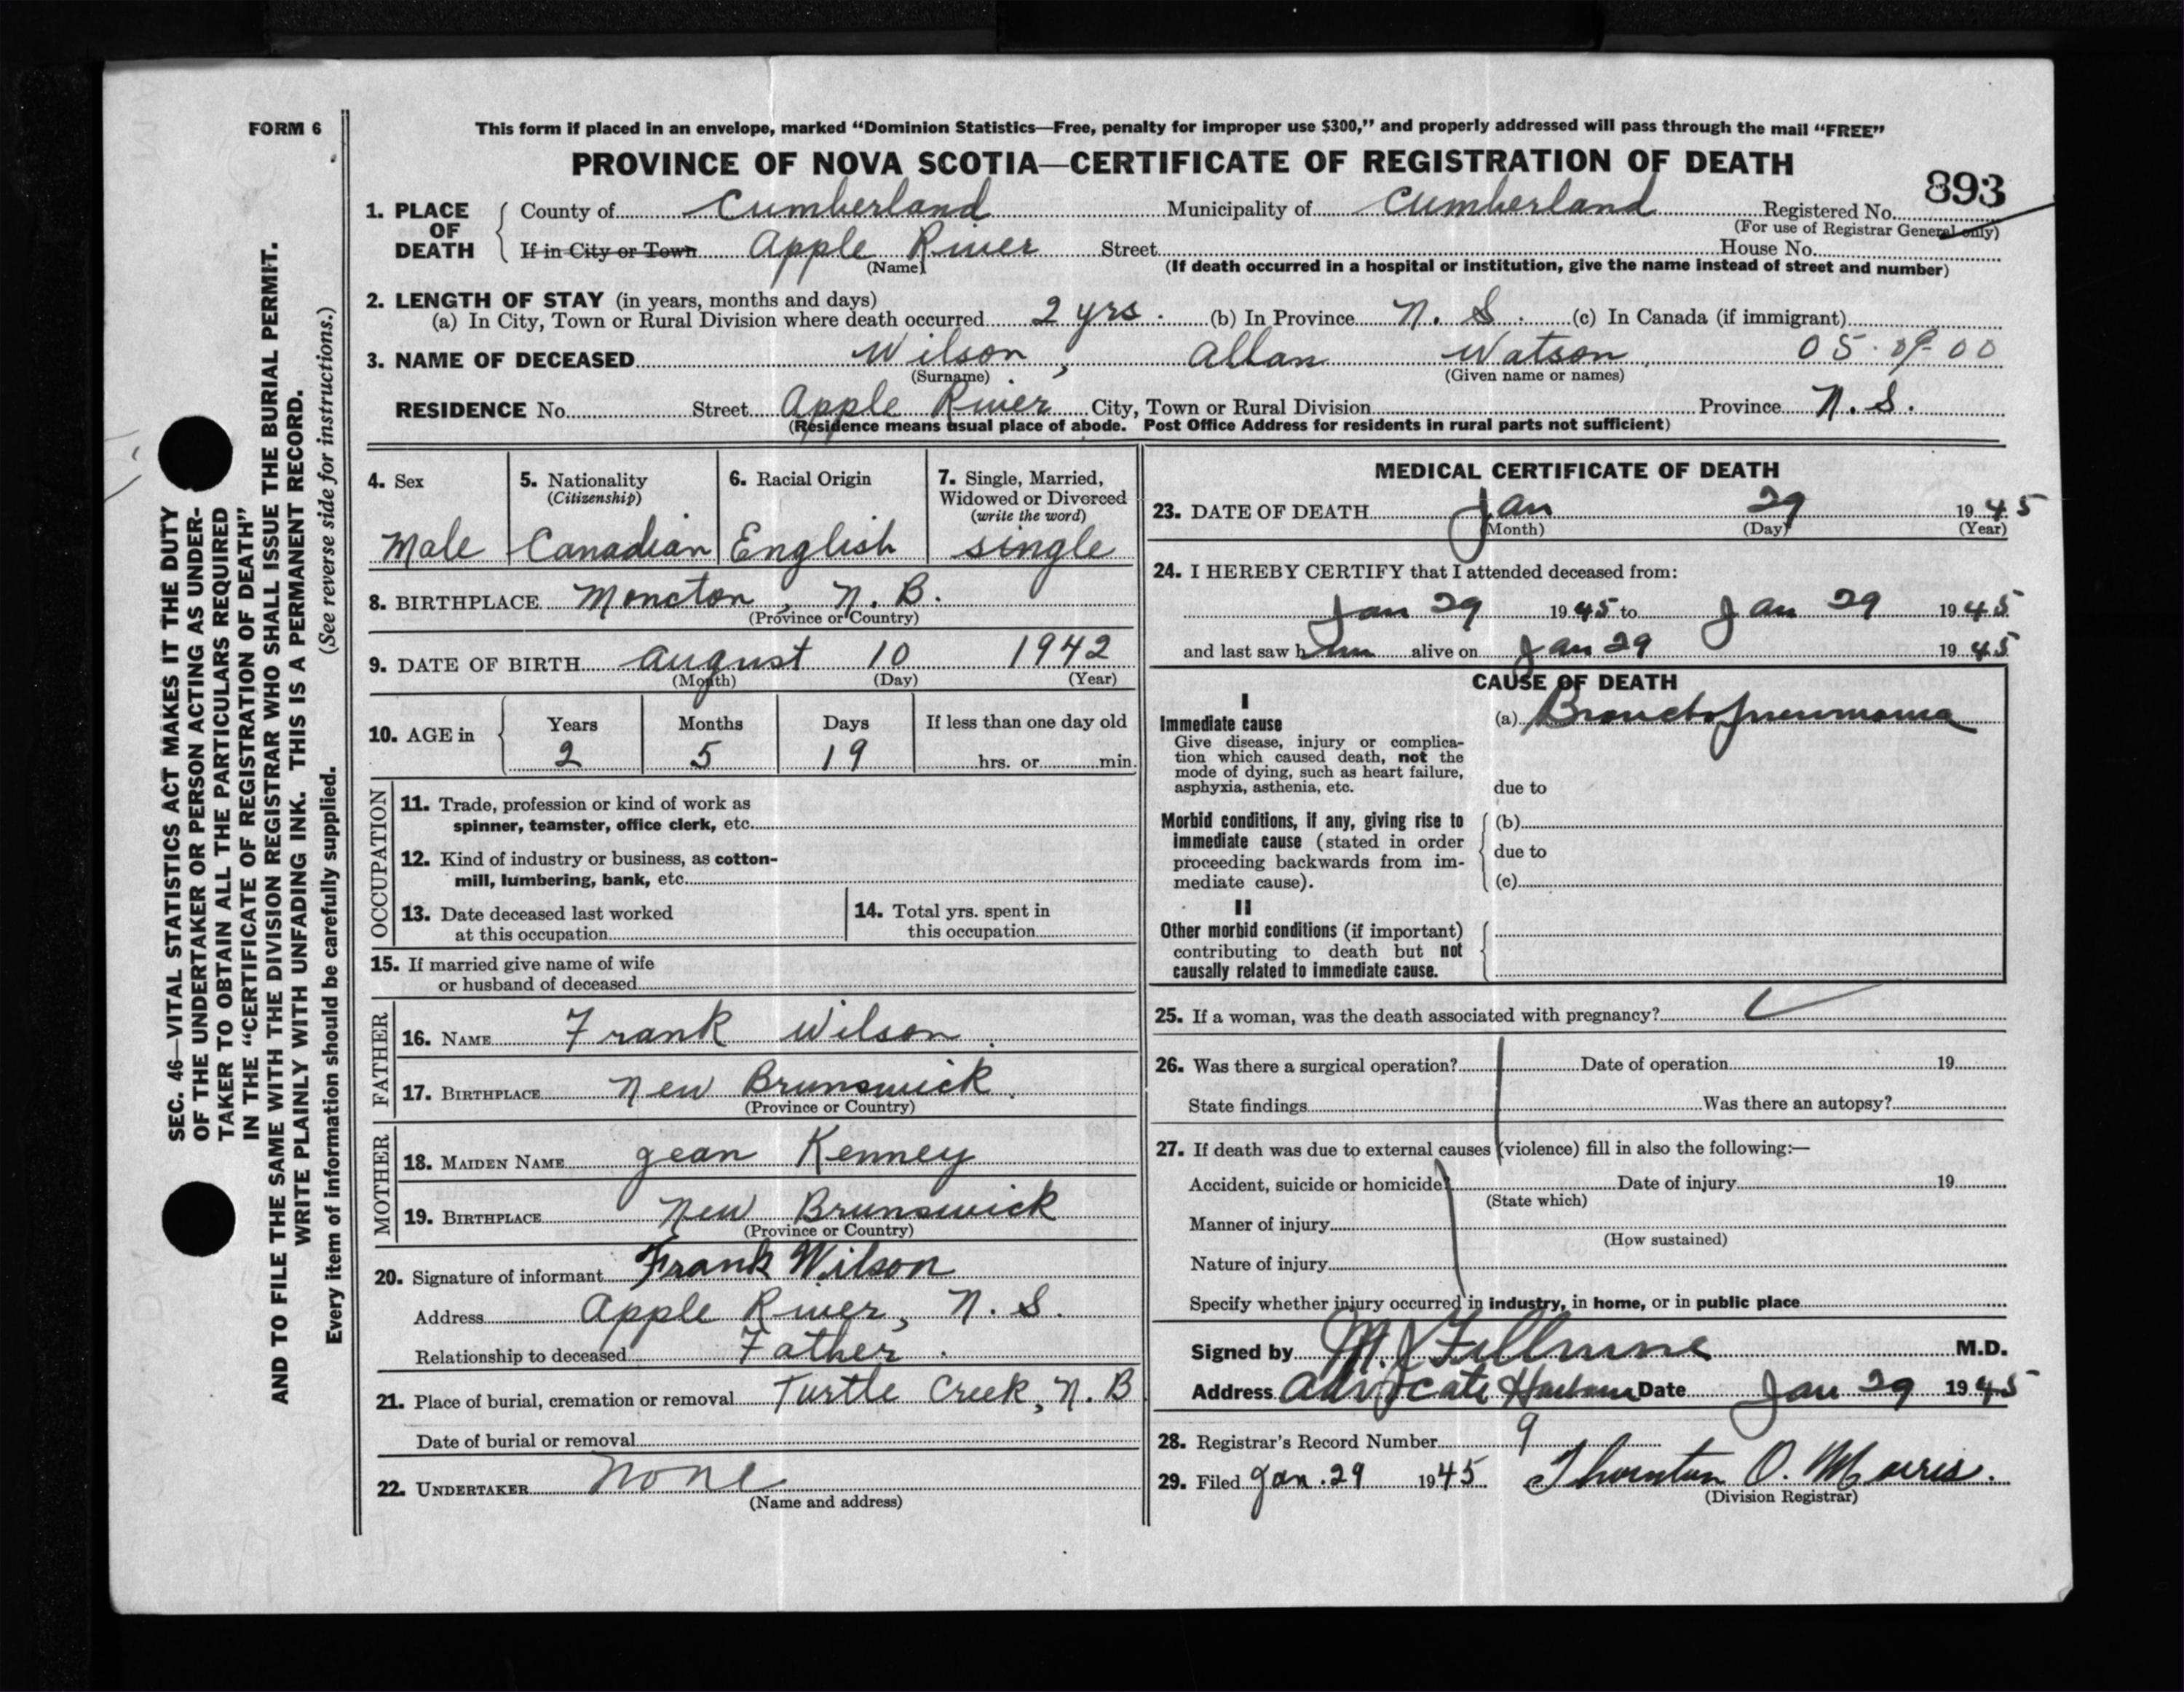 FORM 6
This form if placed in an envelope, marked "Dominion Statistics—Free, penalty for improper use $300," and properly addressed will pass through the mail "FREE"
PROVINCE OF NOVA SCOTIA—CERTIFICATE OF REGISTRATION OF DEATH
893
1. PLACE OF DEATH County of Cumberland Municipality of Cumberland Registered No.
(For use of Registrar General only)
If in City or Town Apple River Street House No.
(Name) (If death occurred in a hospital or institution, give the name instead of street and number)
2. LENGTH OF STAY (in years, months and days)
(a) In City, Town or Rural Division where death occurred 2 yrs. (b) In Province N. S. (c) In Canada (if immigrant)
3. NAME OF DECEASED Wilson, Allan Watson 05 09 00
(Surname) (Given name or names)
RESIDENCE No. Street Apple River City, Town or Rural Division Province N. S.
(Residence means usual place of abode. Post Office Address for residents in rural parts not sufficient)
4. Sex
Male
5. Nationality
(Citizenship)
Canadian
6. Racial Origin
English
7. Single, Married,
Widowed or Divorced
(write the word)
single
8. BIRTHPLACE Moncton, N. B.
(Province or Country)
9. DATE OF BIRTH August 10 1942
(Month) (Day) (Year)
10. AGE in Years Months Days If less than one day old
2 5 19 hrs. or min.
OCCUPATION
11. Trade, profession or kind of work as
spinner, teamster, office clerk, etc.
12. Kind of industry or business, as cotton-
mill, lumbering, bank, etc.
13. Date deceased last worked
at this occupation
14. Total yrs. spent in
this occupation
15. If married give name of wife
or husband of deceased
FATHER
16. NAME Frank Wilson.
17. BIRTHPLACE New Brunswick.
(Province or Country)
MOTHER
18. MAIDEN NAME Jean Kenney
19. BIRTHPLACE New Brunswick
(Province or Country)
20. Signature of informant Frank Wilson
Address Apple River, N. S.
Relationship to deceased Father.
21. Place of burial, cremation or removal Turtle Creek, N. B
Date of burial or removal
22. UNDERTAKER None
(Name and address)
MEDICAL CERTIFICATE OF DEATH
23. DATE OF DEATH Jan 29 1945
(Month) (Day) (Year)
24. I HEREBY CERTIFY that I attended deceased from:
Jan 29 1945 to Jan 29 1945
and last saw him alive on Jan 29 1945
CAUSE OF DEATH
I
Immediate cause (a) Bronchopneumonia
Give disease, injury or complica-
tion which caused death, not the
mode of dying, such as heart failure,
asphyxia, asthenia, etc. due to
Morbid conditions, if any, giving rise to (b)
immediate cause (stated in order
proceeding backwards from im- due to
mediate cause). (c)
II
Other morbid conditions (if important)
contributing to death but not
causally related to immediate cause.
25. If a woman, was the death associated with pregnancy?
26. Was there a surgical operation? Date of operation 19
State findings Was there an autopsy?
27. If death was due to external causes (violence) fill in also the following:—
Accident, suicide or homicide? Date of injury 19
(State which)
Manner of injury
(How sustained)
Nature of injury
Specify whether injury occurred in industry, in home, or in public place
Signed by M. J Fillmore M.D.
Address Advocate Harbour Date Jan 29 1945
28. Registrar's Record Number 9
29. Filed Jan. 29 1945 Thornton O. Morris.
(Division Registrar)
SEC. 46—VITAL STATISTICS ACT MAKES IT THE DUTY
OF THE UNDERTAKER OR PERSON ACTING AS UNDER-
TAKER TO OBTAIN ALL THE PARTICULARS REQUIRED
IN THE "CERTIFICATE OF REGISTRATION OF DEATH"
AND TO FILE THE SAME WITH THE DIVISION REGISTRAR WHO SHALL ISSUE THE BURIAL PERMIT.
WRITE PLAINLY WITH UNFADING INK. THIS IS A PERMANENT RECORD.
Every item of information should be carefully supplied. (See reverse side for instructions.)